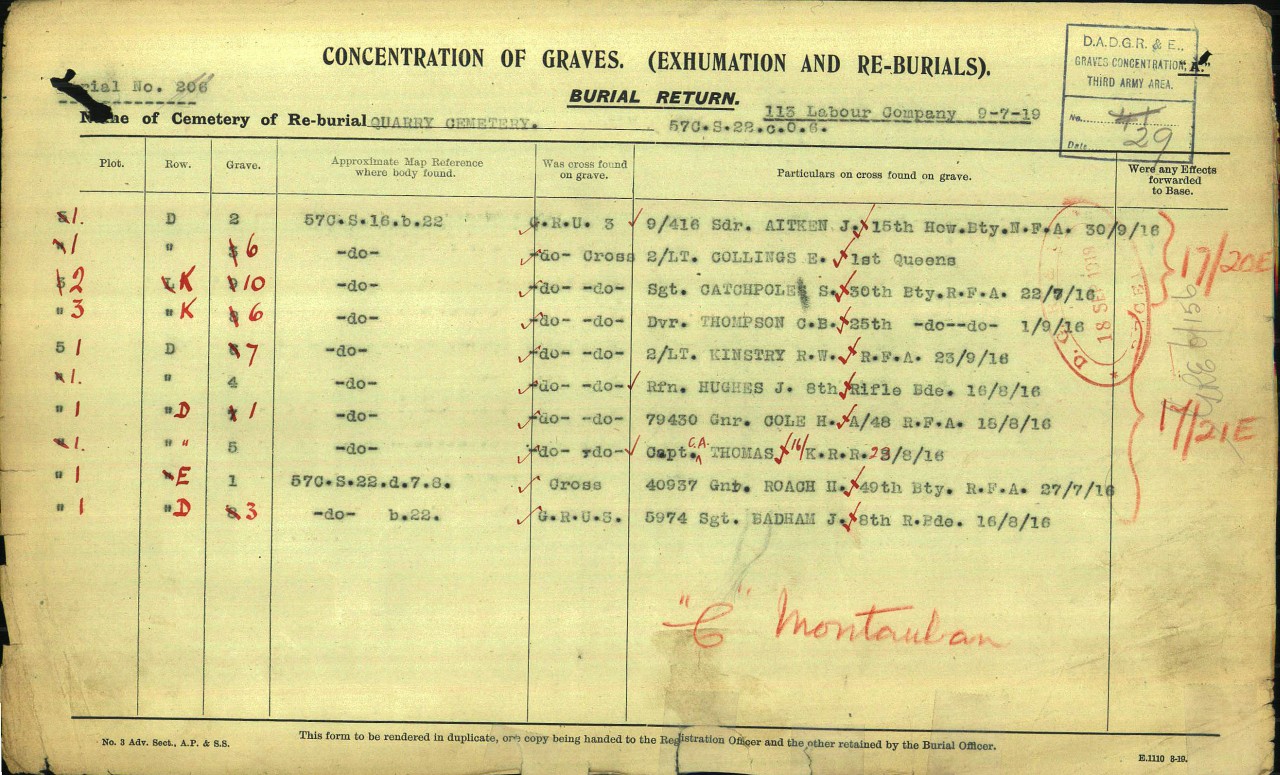 CONCENTRATION OF GRAVES. (EXHUMATION AND RE-BURIALS).
"A."
D.A.D.G.R. & E.,
GRAVES CONCENTRATION,
THIRD ARMY AREA.
No.
Date 29
rial No. 206
BURIAL RETURN.
113 Labour Company 9-7-19
Name of Cemetery of Re-burial QUARRY CEMETERY. 57C.S.22.c.0.6.
Plot. Row. Grave. Approximate Map Reference where body found. Was cross found on grave. Particulars on cross found on grave. Were any Effects forwarded to Base.
1. D 2 57C.S.16.b.22 G.R.U. 3 9/416 Sdr. AITKEN J. 15th How.Bty.N.F.A. 30/9/16
1 " 6 -do- -do- Cross 2/LT. COLLINGS E. 1st Queens
2 K 10 -do- -do- -do- Sgt. CATCHPOLE S. 30th Bty.R.F.A. 22/7/16
" 3 " K 6 -do- -do- -do- Dvr. THOMPSON C.B. 25th -do--do- 1/9/16
5 1 D 7 -do- -do- -do- 2/LT. KINSTRY R.W. R.F.A. 23/9/16
1. " 4 -do- -do- -do- Rfn. HUGHES J. 8th Rifle Bde. 16/8/16
" 1 " D 1 -do- -do- -do- 79430 Gnr. COLE H. A/48 R.F.A. 18/8/16
1. " " 5 -do- -do- -do- Capt. G.A. THOMAS 16/ K.R.R. 23/8/16
" 1 E 1 57C.S.22.d.7.8. Cross 40937 Gnr. ROACH H. 49th Bty. R.F.A. 27/7/16
" 1 " D 3 -do- b.22. G.R.U.3. 5974 Sgt. BADHAM J. 8th R.Bde. 16/8/16
17/20E
18 SEP 1919
17/21E
"C" Montauban
No. 3 Adv. Sect., A.P. & S.S.
This form to be rendered in duplicate, one copy being handed to the Registration Officer and the other retained by the Burial Officer.
E.1110 8-19.